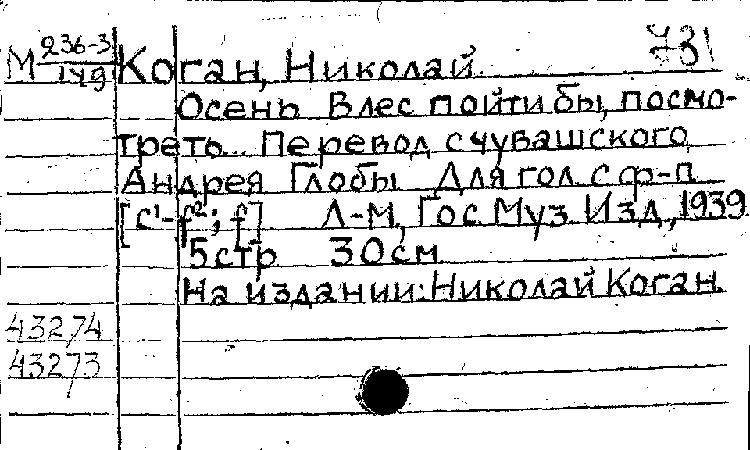 М 236-3/149 Коган, Николай 731
Осень. В лес пойти бы, посмо-
треть... Перевод с чувашского
Андрея Глобы Для гол. с ф-п.
[c¹-f²; f] Л-М, Гос. Муз. Изд., 1939
5 стр 30 см
На издании: Николай Коган.
43274
43273